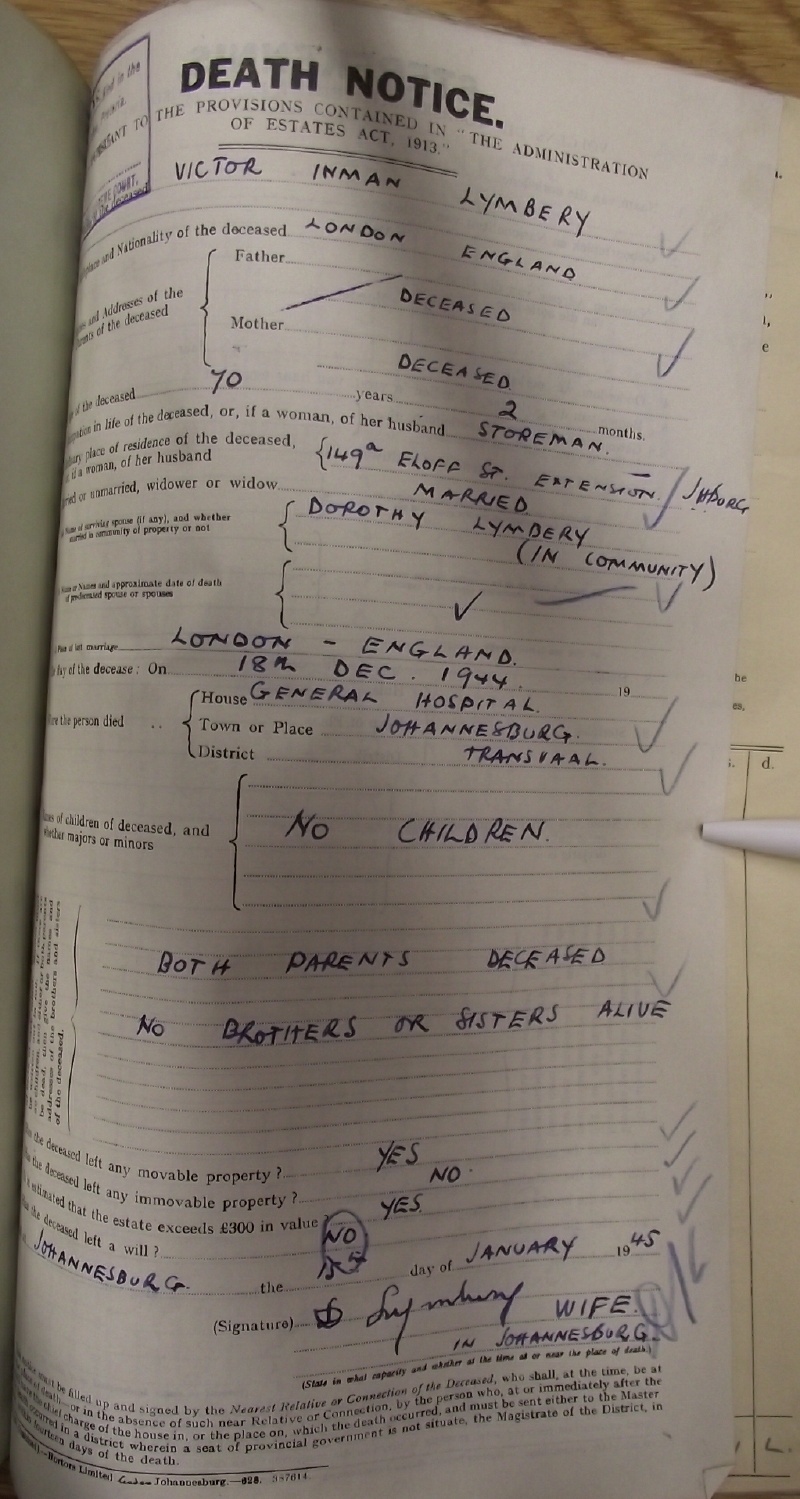 DEATH NOTICE.
TO THE PROVISIONS CONTAINED IN "THE ADMINISTRATION
OF ESTATES ACT, 1913."
VICTOR INMAN LYMBERY
and Nationality of the deceased LONDON ENGLAND
and Addresses of the
of the deceased
Father
DECEASED
Mother
DECEASED
of the deceased 70 years 2 months.
in life of the deceased, or, if a woman, of her husband STOREMAN.
place of residence of the deceased,
if a woman, of her husband
149a ELOFF ST. EXTENSION. JHBURG
or unmarried, widower or widow MARRIED
Name of surviving spouse (if any), and whether
married in community of property or not
DOROTHY LYMBERY
(IN COMMUNITY)
Name or Names and approximate date of death
of predeceased spouse or spouses
Place of last marriage LONDON - ENGLAND.
day of the decease: On 18th DEC. 1944. 19
the person died
House GENERAL HOSPITAL.
Town or Place JOHANNESBURG.
District TRANSVAAL.
of children of deceased, and
whether majors or minors
NO CHILDREN.
be dead, then give the names and
addresses of the brothers and sisters
of the deceased.
BOTH PARENTS DECEASED
NO BROTHERS OR SISTERS ALIVE
the deceased left any movable property? YES
the deceased left any immovable property? NO.
estimated that the estate exceeds £300 in value? YES.
the deceased left a will? NO
JOHANNESBURG. the day of JANUARY 1945
(Signature) D Lymbery WIFE.
IN JOHANNESBURG.
(State in what capacity and whether at the time at or near the place of death.)
must be filled up and signed by the Nearest Relative or Connection of the Deceased, who shall, at the time, be at
of death—or in the absence of such near Relative or Connection, by the person who, at or immediately after the
charge of the house in, or the place on, which the death occurred, and must be sent either to the Master
occurred in a district wherein a seat of provincial government is not situate, the Magistrate of the District, in
fourteen days of the death.
Hortors Limited Johannesburg.—628.